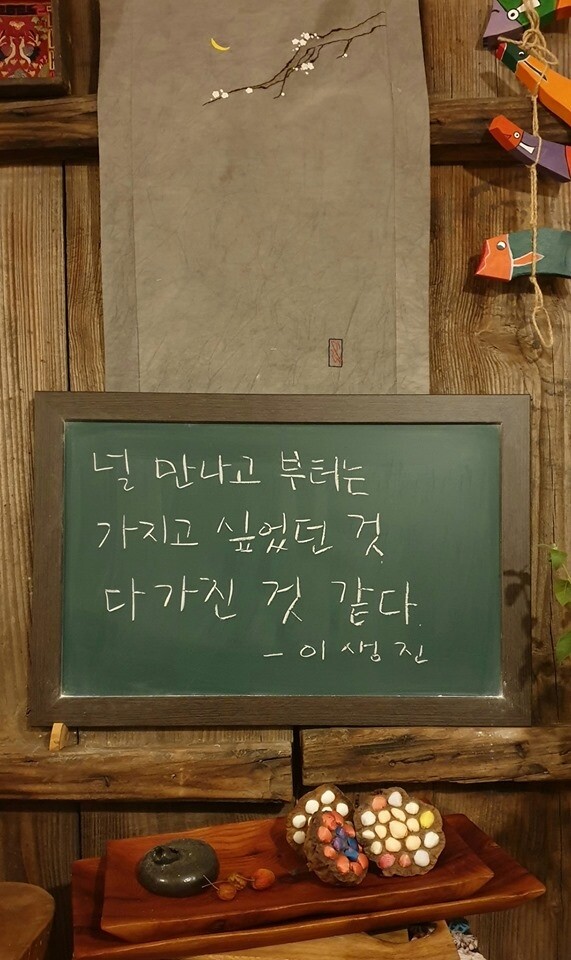 널 만나고 부터는
가지고 싶었던 것
다 가진 것 같다.
- 이생진